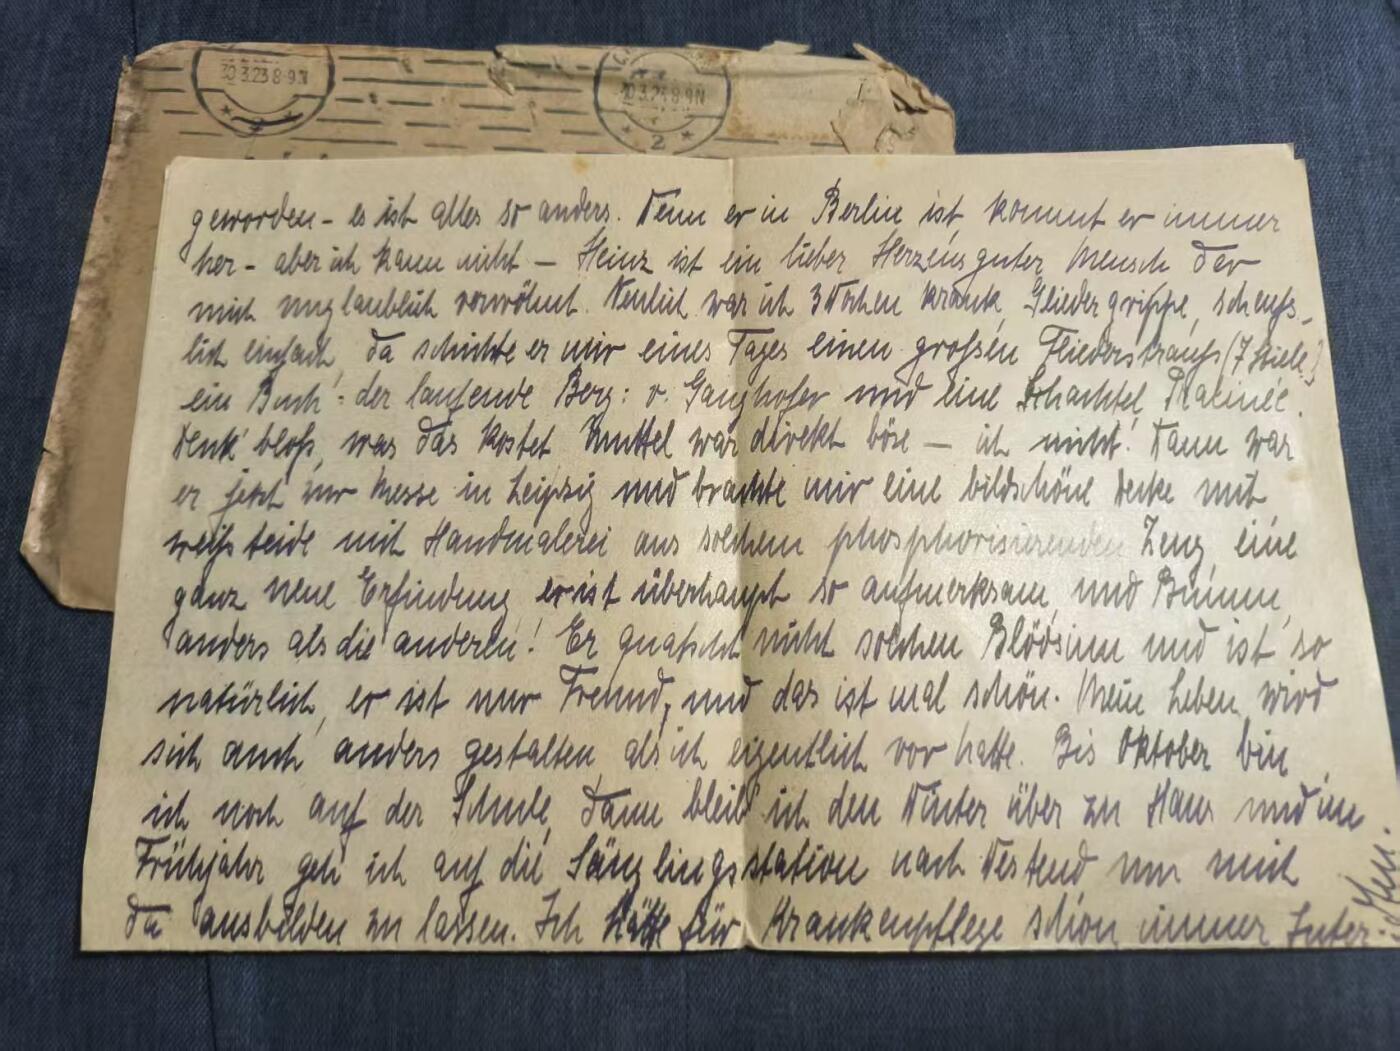 30.3.23 8-9N
30.3.23 8-9N
2
geworden - es ist alles so anders. Wenn er in Berlin ist, kommt er immer
her - aber ich kann nicht - Heinz ist ein lieber Herzensguter Mensch der
mich unglaublich verwöhnt. Neulich war ich 3 Wochen krank, Gliedergrippe, scheuss-
lich einfach, da schickte er mir eines Tages einen großen Fliederstrauß (7 Stiele!)
ein Buch: der laufende Berg: v. Ganghofer und eine Schachtel Pralinée.
Denk' bloß, was das kostet Muttel war direkt böse - ich nicht! Dann war
er jetzt zur Messe in Leipzig und brachte mir eine bildschöne Decke mit
weiß Seide mit Handmalerei aus solchem phosphorisierenden Zeug, eine
ganz neue Erfindung, er ist überhaupt so aufmerksam, und
anders als die anderen! Er quatscht nicht solchen Blödsinn und ist so
natürlich, er ist nur Freund, und das ist mal schön. Mein Leben wird
sich auch anders gestalten, als ich eigentlich vor hatte. Bis Oktober bin
ich noch auf der Schule, dann bleib' ich den Winter über zu Haus und im
Frühjahr geh ich auf die Säuglingsstation nach Westend um mich
da ausbilden zu lassen. Ich hätte für Krankenpflege schon immer Inter-